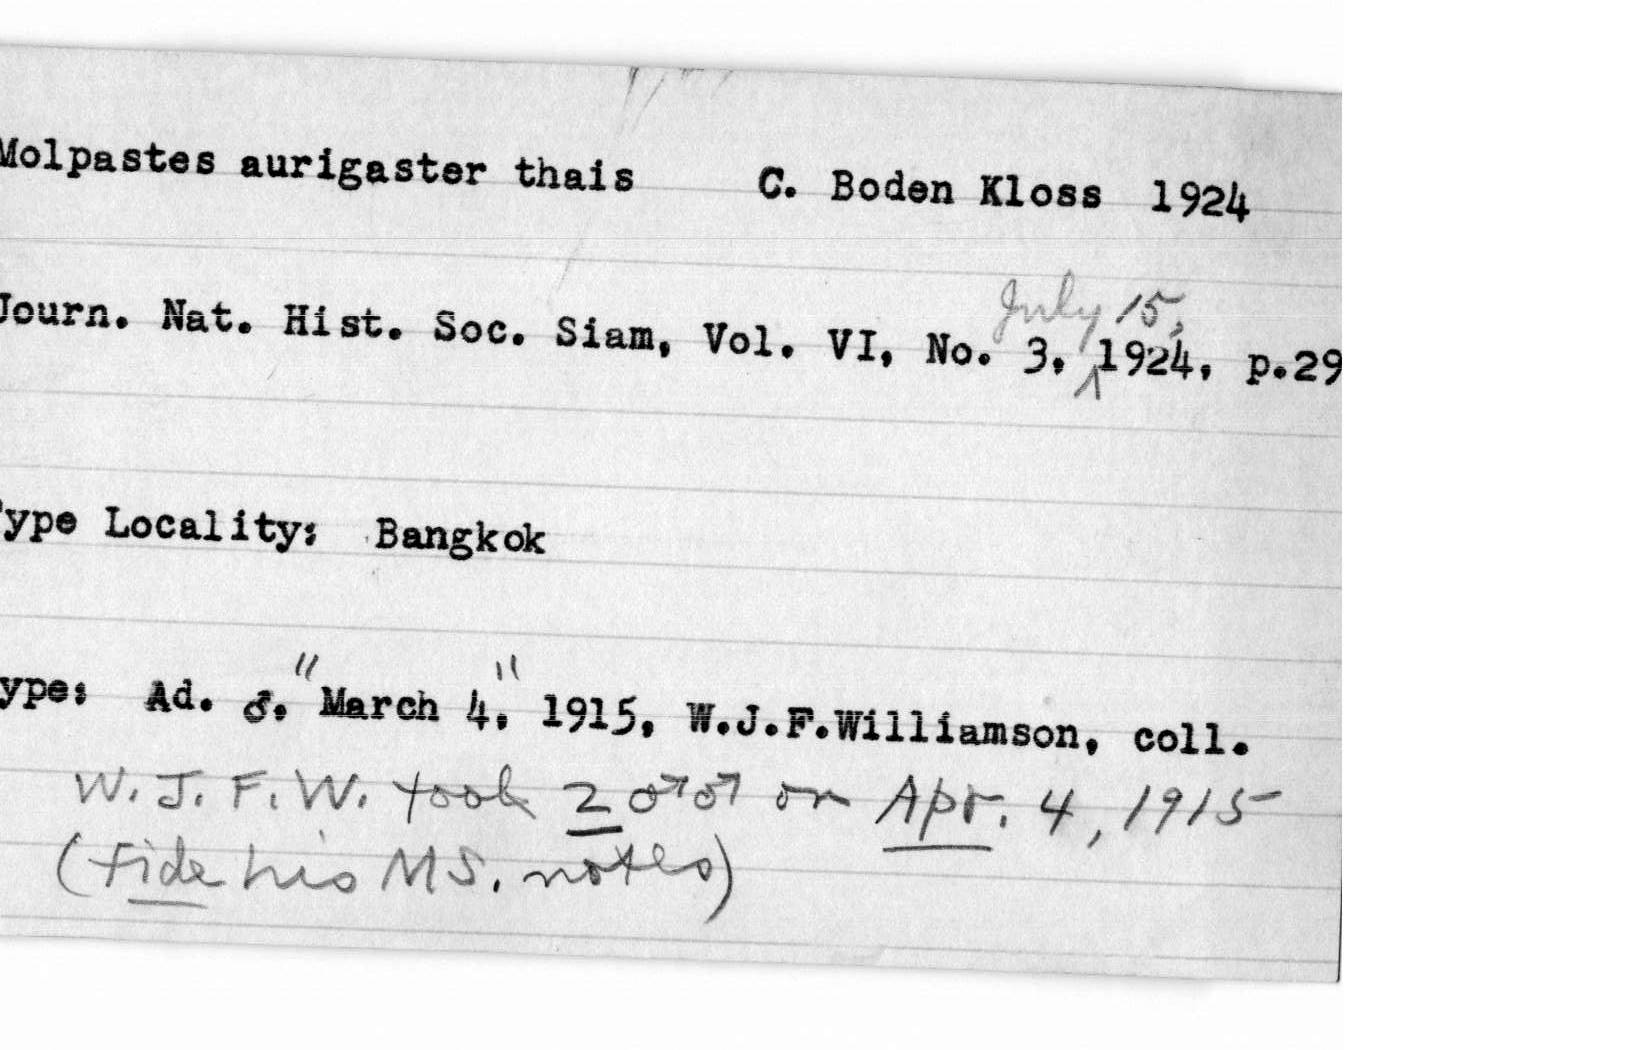 Molpastes aurigaster thais C. Boden Kloss 1924
July 15,
Journ. Nat. Hist. Soc. Siam, Vol. VI, No. 3, 1924, p.29
ype Locality: Bangkok
ype: Ad. ♂. "March 4," 1915, W.J.F.Williamson, coll.
W. J. F. W. took 2 ♂♂ on Apr. 4, 1915
(fide his MS. notes)